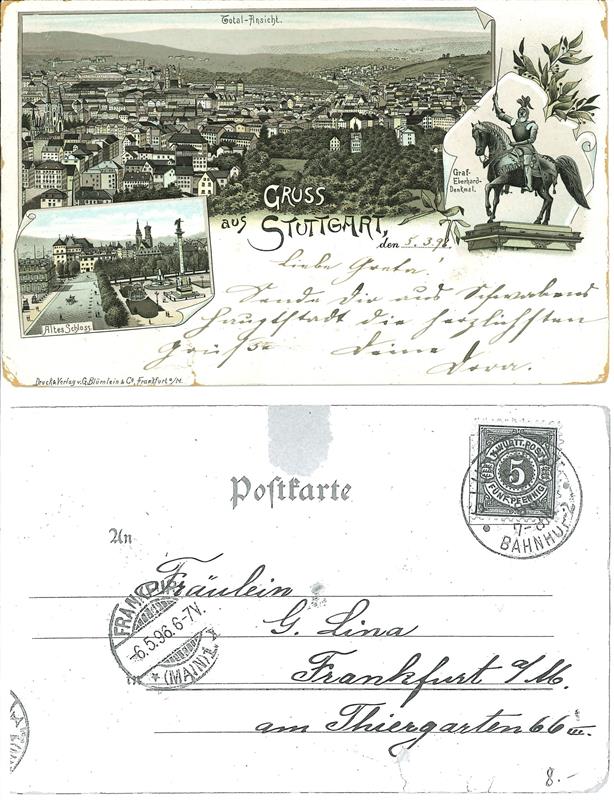 Total-Ansicht.
Graf-
Eberhard-
Denkmal.
GRUSS
aus STUTTGART,
den 5. 3. 96.
Altes Schloss.
Liebe Greta.
Sende Dir aus Schwabens
Hauptstadt die herzlichsten
Grüsse Deine
Dora.
Druck & Verlag v. G. Blümlein & Co, Frankfurt a/M.
Postkarte
K. WÜRTT. POST
5
FÜNF PFENNIG
7-8
BAHNHOF
An
Fräulein
G. Lina
in Frankfurt a/M.
am Thiergarten 66 III.
FRANKFURT
6.5.96.6-7N.
(MAIN)1.
8.-